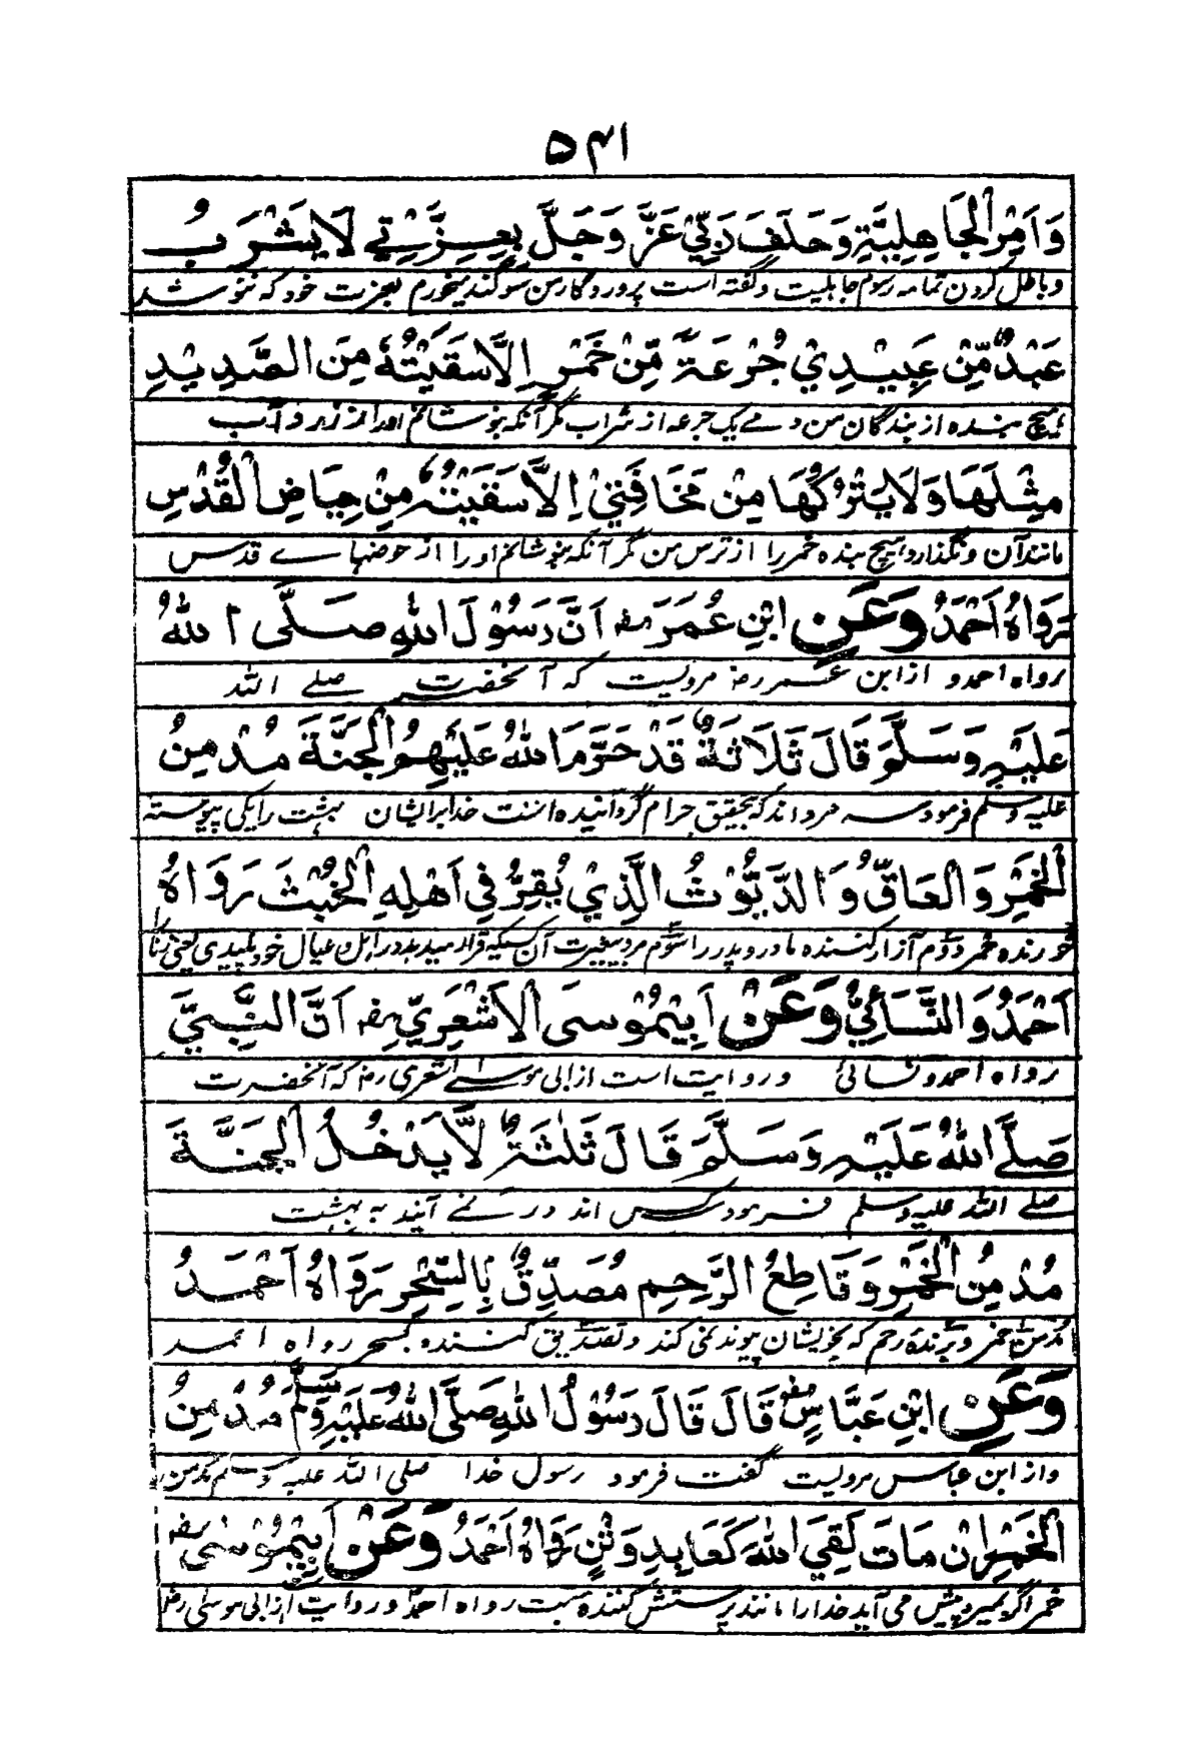 ۵۴۱
وَاَمْرِ الْجَاهِلِيَّةِ وَحَلَفَ رَبِّيْ عَزَّ وَجَلَّ بِعِزَّتِيْ لَا يَشْرَبُ
وباطل کردن تمامه رسوم جاہلیت وگفته است پروردگار من سوگند میخورم بعزت خود که ننوشد
عَبْدٌ مِّنْ عَبِيْدِيْ جُرْعَةً مِّنْ خَمْرٍ اِلَّا سَقَيْتُهٗ مِنَ الصَّدِيْدِ
ہیچ بنده از بندگان من دمے یک جرعه از شراب مگر آنکه بنوشانم اورا از زرد آب
مِثْلَهَا وَلَا يَتْرُكُهَا مِنْ مَخَافَتِيْ اِلَّا سَقَيْتُهٗ مِنْ حِيَاضِ الْقُدْسِ
مانند آن ونگذارد ہیچ بنده خمر را از ترس من مگر آنکه بنوشانم اورا از حوضہاے قدس
رَوَاهُ اَحْمَدُ وَعَنِ ابْنِ عُمَرَ رض اَنَّ رَسُوْلَ اللهِ صَلَّى اللهُ
رواه احمد و از ابن عمر رض مرویست که آنحضرت صلے الله
عَلَيْهِ وَسَلَّمَ قَالَ ثَلَاثَةٌ قَدْ حَرَّمَ اللهُ عَلَيْهِمُ الْجَنَّةَ مُدْمِنُ
علیه وسلم فرمود سه مرد اند که بتحقیق حرام گردانیده است خدا برایشان بهشت را یکی پیوسته
الْخَمْرِ وَالْعَاقُّ وَالدَّيُّوْثُ الَّذِيْ يُقِرُّ فِيْ اَهْلِهِ الْخُبْثَ رَوَاهُ
خورنده خمر دوم آزار کننده مادر و پدر را سوم مرد بیغیرت آن کسیکه قرار میدہد در اہل وعیال خود پلیدی یعنی زنا
اَحْمَدُ وَالنَّسَائِيُّ وَعَنْ اَبِيْ مُوْسَى الْاَشْعَرِيِّ رض اَنَّ النَّبِيَّ
رواه احمد ونسائی وروایت است از ابی موسے اشعری رض که آنحضرت
صَلَّى اللهُ عَلَيْهِ وَسَلَّمَ قَالَ ثَلٰثَةٌ لَّا يَدْخُلُ الْجَنَّةَ
صلے الله علیه وسلم فرمود کس اند در نے آیند به بهشت
مُدْمِنُ الْخَمْرِ وَقَاطِعُ الرَّحِمِ مُصَدِّقٌ بِالسِّحْرِ رَوَاهُ اَحْمَدُ
مدمن خمر وبرنده رحم که بخویشان پیوند نمی کند وتصدیق کننده بسحر رواه احمد
وَعَنِ ابْنِ عَبَّاسٍ رض قَالَ قَالَ رَسُوْلُ اللهِ صَلَّى اللهُ عَلَيْهِ وَسَلَّمَ مُدْمِنُ
واز ابن عباس مرویست گفت فرمود رسول خدا صلی الله علیه وسلم مدمن
الْخَمْرِ اِنْ مَاتَ لَقِيَ اللهَ كَعَابِدِ وَثَنٍ رَوَاهُ اَحْمَدُ وَعَنْ اَبِيْ مُوْسٰى رض
خمر اگر بمیرد پیش می آید خدا را مانند پرستش کننده بت رواه احمد وروایت از ابی موسی رض